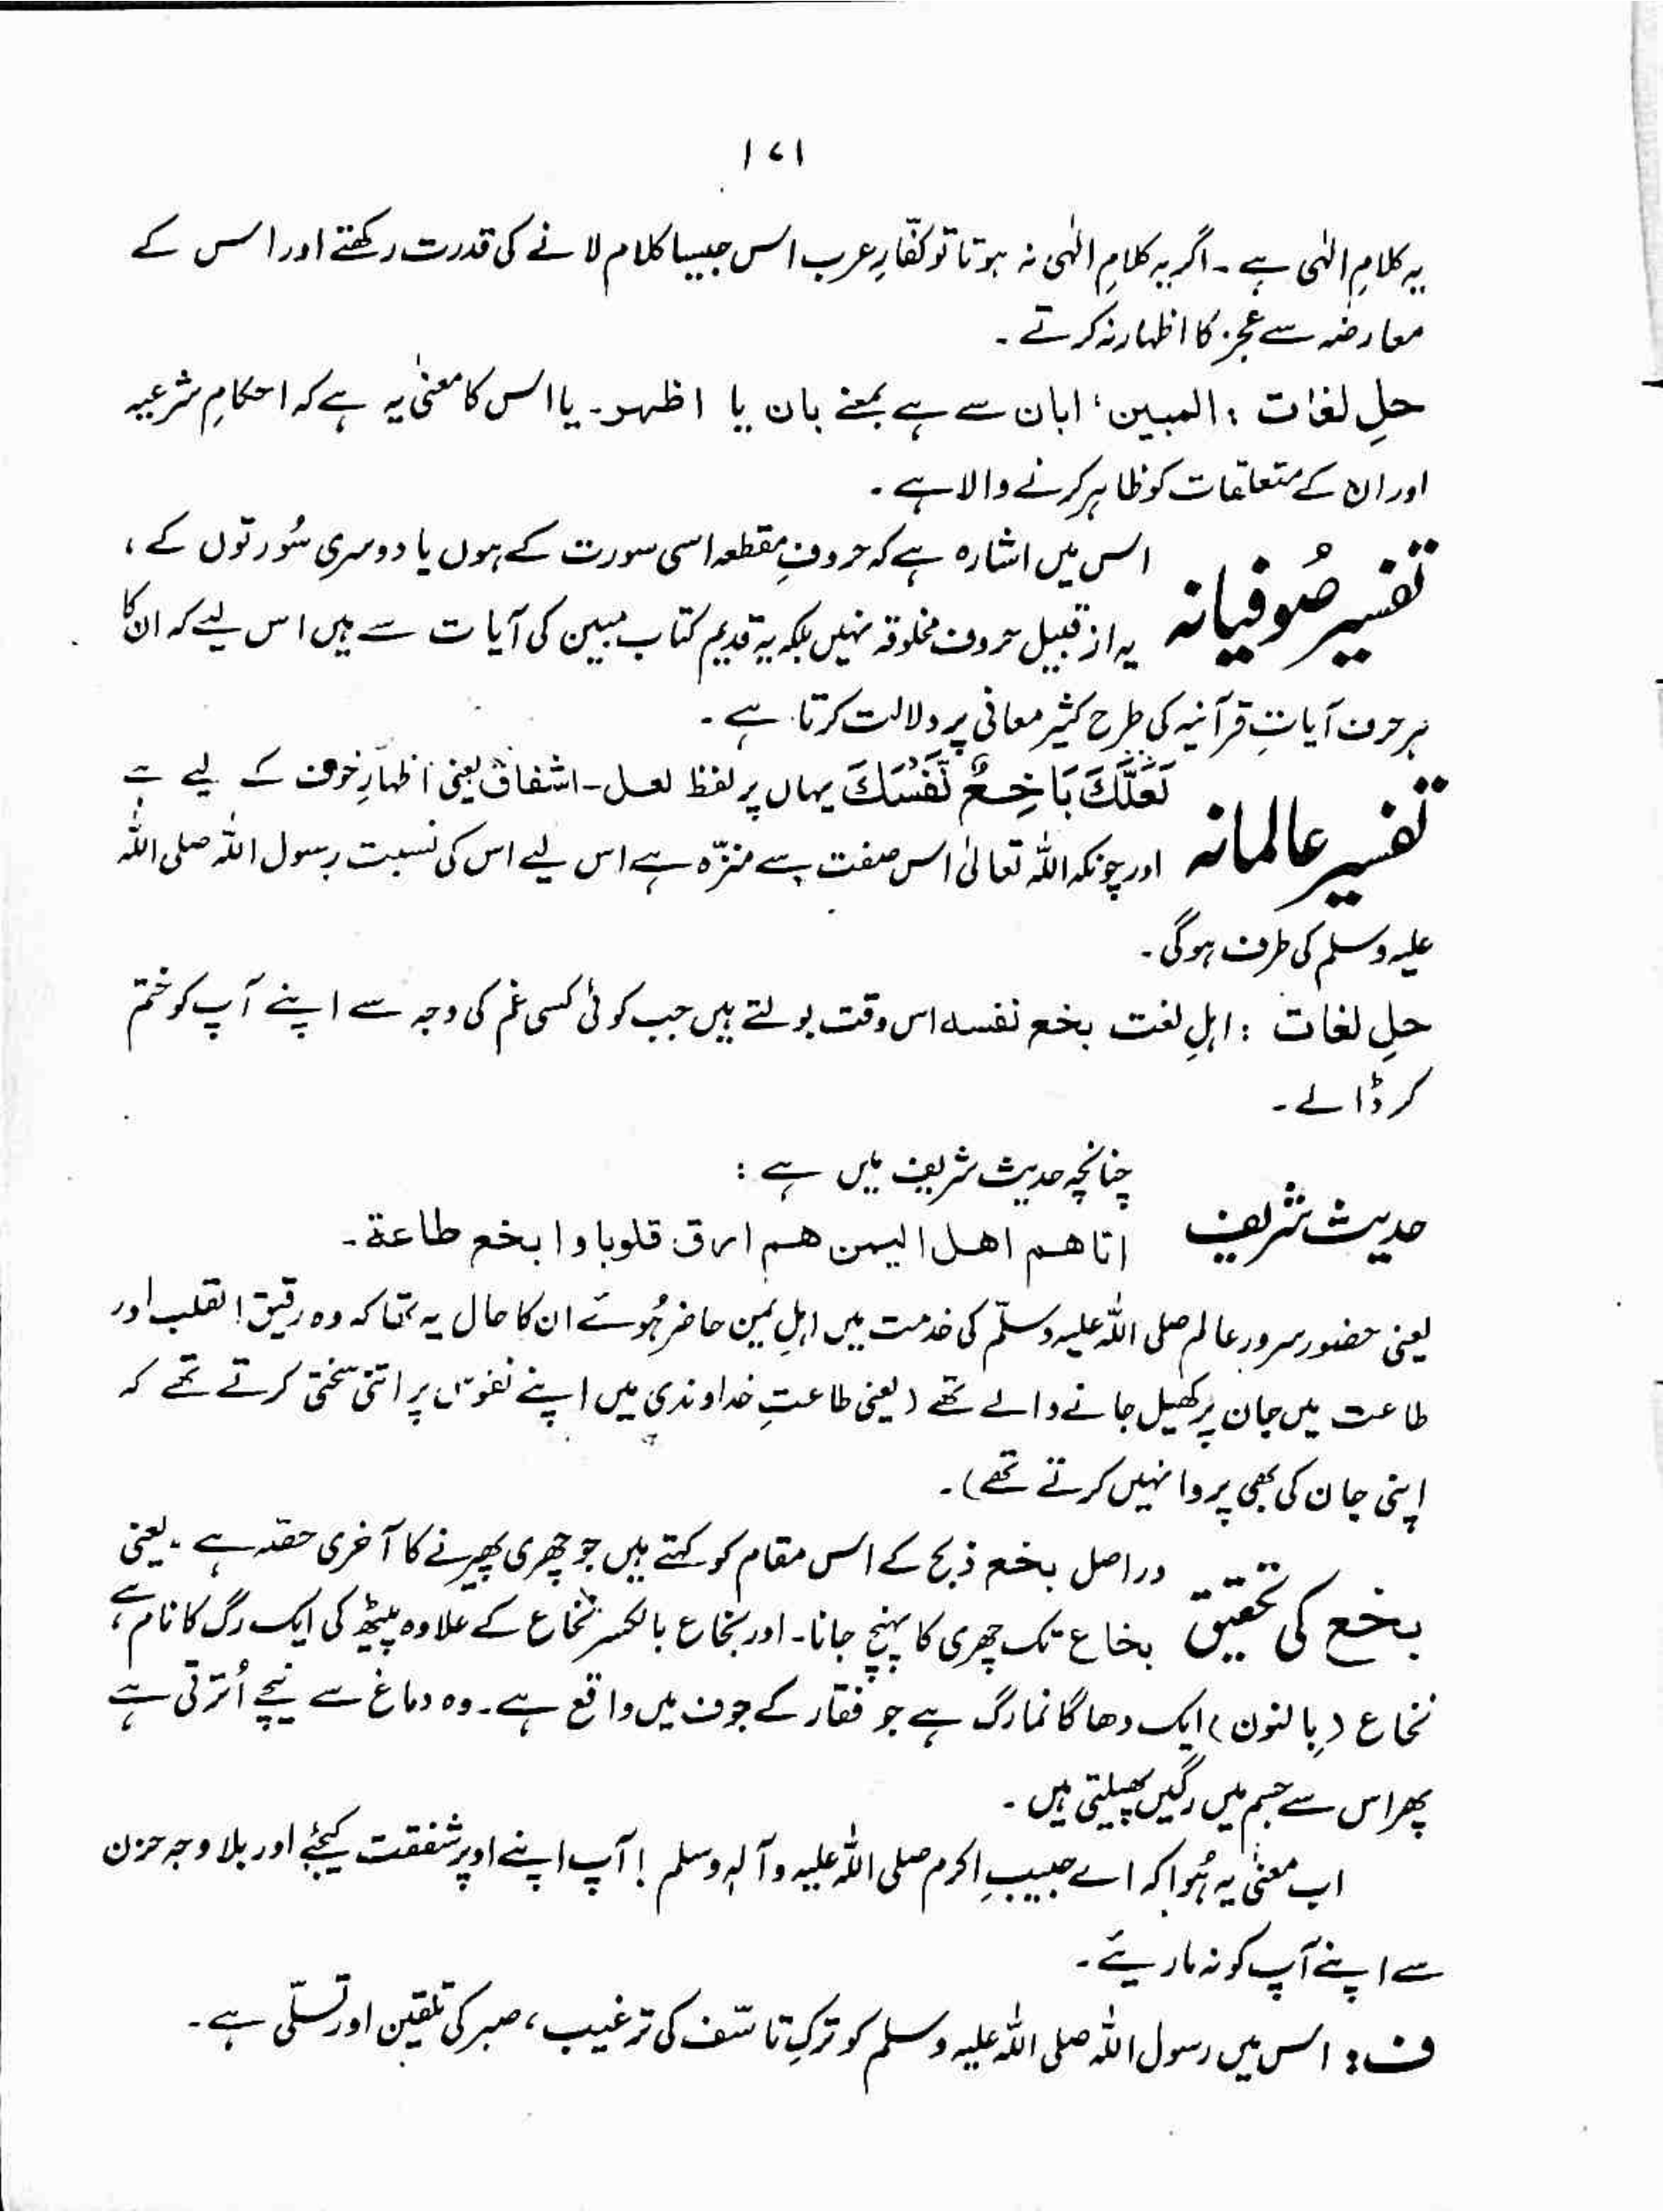 ۱۷۱
یہ کلامِ الٰہی ہے ۔ اگر یہ کلامِ الٰہی نہ ہوتا تو کفّارِ عرب اس جیسا کلام لانے کی قدرت رکھتے اور اس کے
معارضہ سے عجز کا اظہار نہ کرتے ۔
حلِ لغات : المبین ، ابان سے ہے بمعنے بان یا اظہر ۔ یا اس کا معنیٰ یہ ہے کہ احکامِ شرعیہ
اور ان کے متعلقات کو ظاہر کرنے والا ہے ۔
تفسیر صُوفیانہ اس میں اشارہ ہے کہ حروفِ مقطعہ اسی سورت کے ہوں یا دوسری سُورتوں کے ،
یہ از قبیل حروف مخلوقہ نہیں بلکہ یہ قدیم کتاب مبین کی آیات سے ہیں اس لیے کہ ان کا
ہر حرف آیاتِ قرآنیہ کی طرح کثیر معانی پر دلالت کرتا ہے ۔
تفسیر عالمانہ لَعَلَّكَ بَاخِعٌ نَّفْسَكَ یہاں پر لفظ لعل ۔ اشفاق یعنی اظہارِ خوف کے لیے ہے
اور چونکہ اللہ تعالیٰ اس صفت سے منزّہ ہے اس لیے اس کی نسبت رسول اللہ صلی اللہ
علیہ وسلم کی طرف ہوگی ۔
حلِ لغات : اہلِ لغت بخع نفسه اس وقت بولتے ہیں جب کوئی کسی غم کی وجہ سے اپنے آپ کو ختم
کر ڈالے ۔
چنانچہ حدیث شریف میں ہے :
حدیث شریف اتاهم اهل الیمن هم ارق قلوبا و ابخع طاعة ۔
یعنی حضور سرور عالم صلی اللہ علیہ وسلّم کی خدمت میں اہلِ یمن حاضر ہُوئے ان کا حال یہ تھا کہ وہ رقیق القلب اور
طاعت میں جان پر کھیل جانے والے تھے ( یعنی طاعتِ خداوندی میں اپنے نفوس پر اتنی سختی کرتے تھے کہ
اپنی جان کی بھی پروا نہیں کرتے تھے ) ۔
بخع کی تحقیق دراصل بخع ذبح کے اس مقام کو کہتے ہیں جو چھری پھیرنے کا آخری حصّہ ہے ، یعنی
بخاع تک چھری کا پہنچ جانا ۔ اور بخاع بالکسر نخاع کے علاوہ پیٹھ کی ایک رگ کا نام ہے ،
نخاع ( بالنون ) ایک دھاگا نما رگ ہے جو فقار کے جوف میں واقع ہے ۔ وہ دماغ سے نیچے اُترتی ہے
پھر اس سے جسم میں رگیں پھیلتی ہیں ۔
اب معنیٰ یہ ہُوا کہ اے حبیبِ اکرم صلی اللہ علیہ وآلہٖ وسلم ! آپ اپنے اوپر شفقت کیجئے اور بلا وجہ حزن
سے اپنے آپ کو نہ ماریئے ۔
ف : اس میں رسول اللہ صلی اللہ علیہ وسلم کو ترکِ تاسّف کی ترغیب ، صبر کی تلقین اور تسلّی ہے ۔